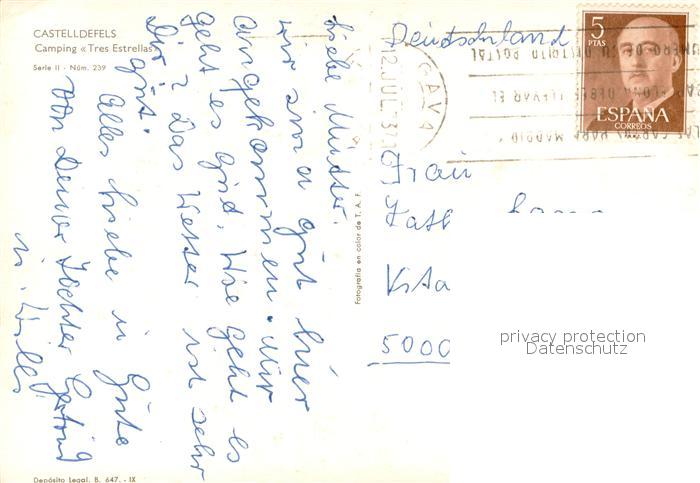 CASTELLDEFELS
Camping «Tres Estrellas»
Serie II - Núm. 239
Liebe Mutter.
wir sind gut hier
angekommen. Mir
geht es gut. Wie geht es
Dir? Das Wetter ist sehr
gut.
Alles Liebe u Gute
von Deiner Tochter
u. Willi
Depósito Legal. B. 647. - IX
Fotografía en color de T. A. F.
Deutschland
GAVA
12 JUL
5
PTAS
ESPAÑA
CORREOS
Frau
5000
privacy protection
Datenschutz